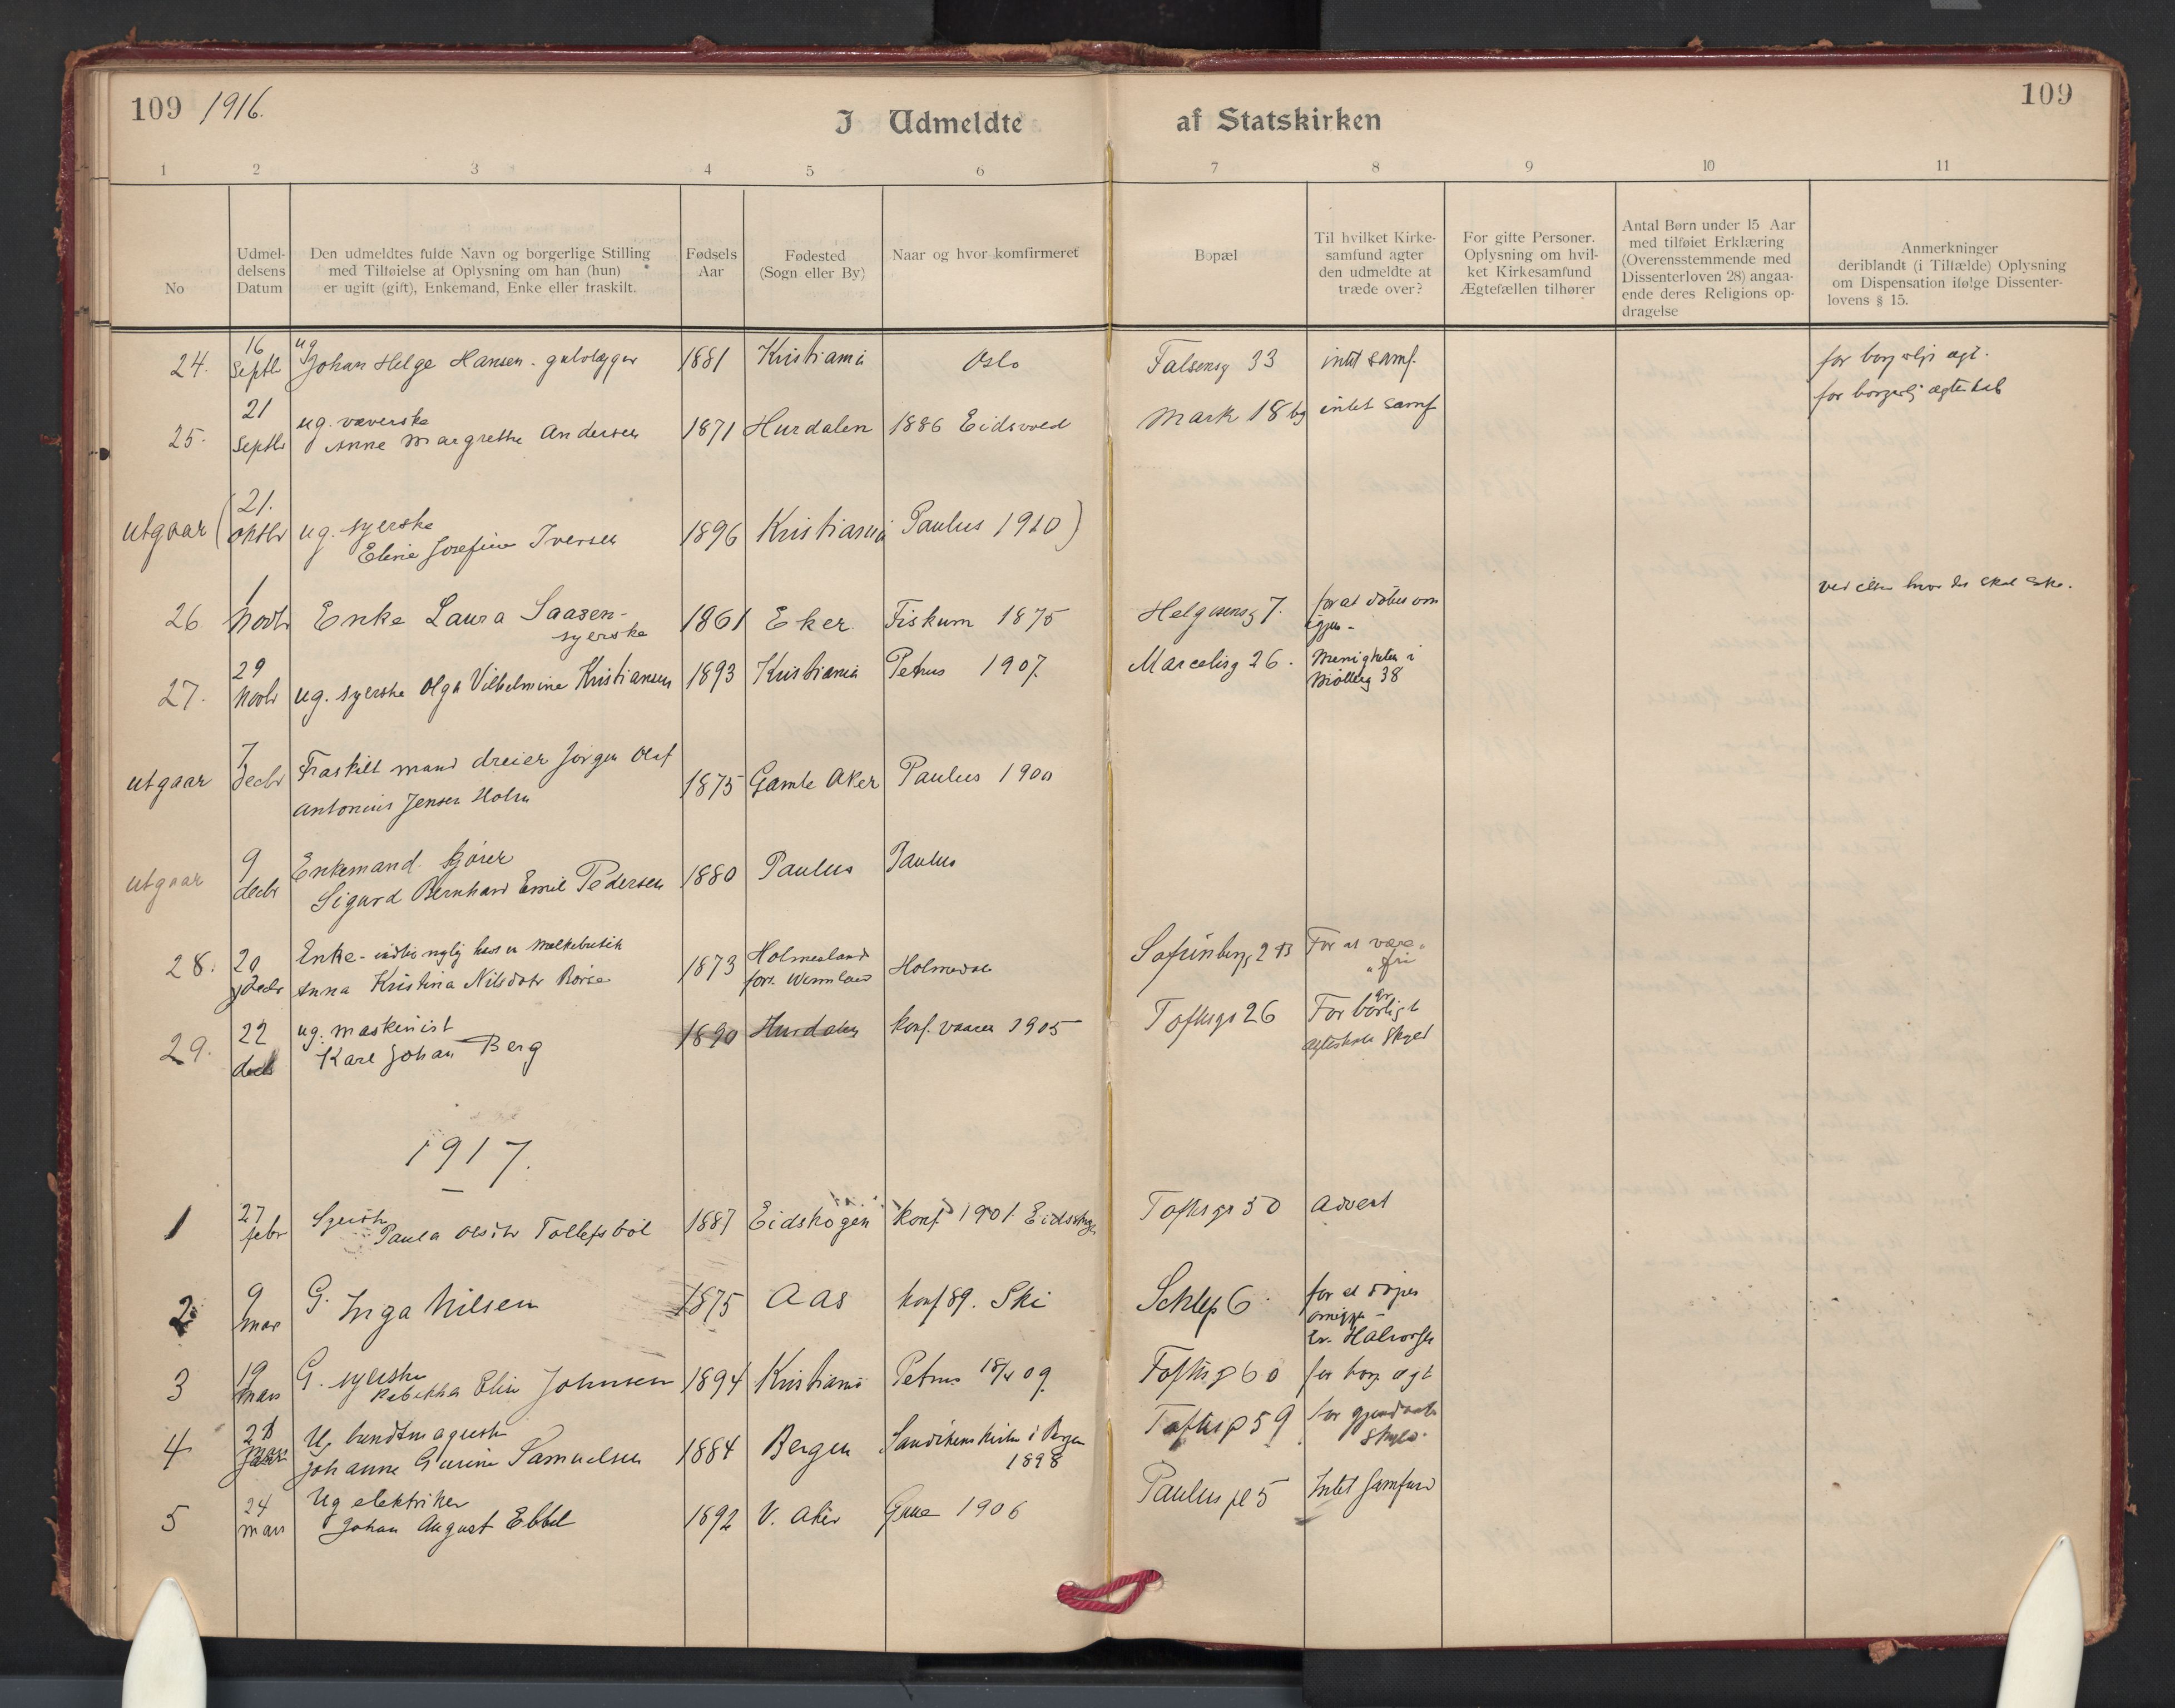 109 1916.
109
I Udmeldte af Statskirken
1 2 3 4 5 6 7 8 9 10 11
No
Udmel-
delsens
Datum
Den udmeldtes fulde Navn og borgerlige Stilling
med Tilføielse af Oplysning om han (hun)
er ugift (gift), Enkemand, Enke eller fraskilt.
Fødsels
Aar
Fødested
(Sogn eller By)
Naar og hvor komfirmeret
Bopæl
Til hvilket Kirke-
samfund agter
den udmeldte at
træde over?
For gifte Personer.
Oplysning om hvil-
ket Kirkesamfund
Ægtefællen tilhører
Antal Børn under 15 Aar
med tilføiet Erklæring
(Overensstemmende med
Dissenterloven 28) angaa-
ende deres Religions op-
dragelse
Anmerkninger
deriblandt (i Tilfælde) Oplysning
om Dispensation ifølge Dissenter-
lovens § 15.
24. 16 Septb ug Johan Helge Hansen - gulvlægger 1881 Kristiania Oslo Falsensg 33 intet samf.
25. 21 Septbr ug. væverske
Anne Margrethe Andersen 1871 Hurdalen 1886 Eidsvold Mark 18 intet samf for borgerlig ægteskab
utgaar (21. oktbr ug. syerske
Eline Josefine Iversen 1896 Kristiania Paulus 1910)
26 1 Novbr Enke Laura Saasen -
syerske 1861 Eker Fiskum 1875 Helgesensg 7. for at døbes om
igjen -
27. 29 Novbr ug. syerske Olga Vilhelmine Kristiansen 1893 Kristiania Petrus 1907. Marcelisg 26. Menigheten i
Møllerg 38
utgaar 7 decbr Fraskilt mand dreier Jørgen Olaf
Antonius Jensen Holm 1875 Gamle Aker Paulus 1900
utgaar 9 decbr Enkemand kjører
Sigurd Bernhard Emil Pedersen 1880 Paulus Paulus
28. 20 decbr Enke -
Anna Kristina Nilsdotr 1873 Holmedal For at være
fri
29. 22 decb ug. maskinist
Karl Johan Berg 1890 Hurdalen Konf. 1905 Toftesgt 26 For
1917.
1 27 febr Syerske
Paula Olsdtr Tollefsbøl 1887 Eidskogen Konf 1901 Eidskogen Toftesgt 30 Advent
2 9 mar G. Inga Nilsen 1875 Aas konf 89. Ski Schlep 6. for at døpes
Halvorsen
3 19 mars G. syerske
Rebekka Elise Johnsen 1894 Kristiania Petrus 09 Toftesgt 60 for borg ægt
4 28 mars Ug. buntmagerske
Johanne Gurine Samuelsen 1884 Bergen Sandvikens kirke i Bergen
1898 Toftesgt 59 for
skyld.
5 24 mars Ug elektriker
Johan August Ebbel 1892 V. Aker 1906 Paulus pl 5 Intet samfund